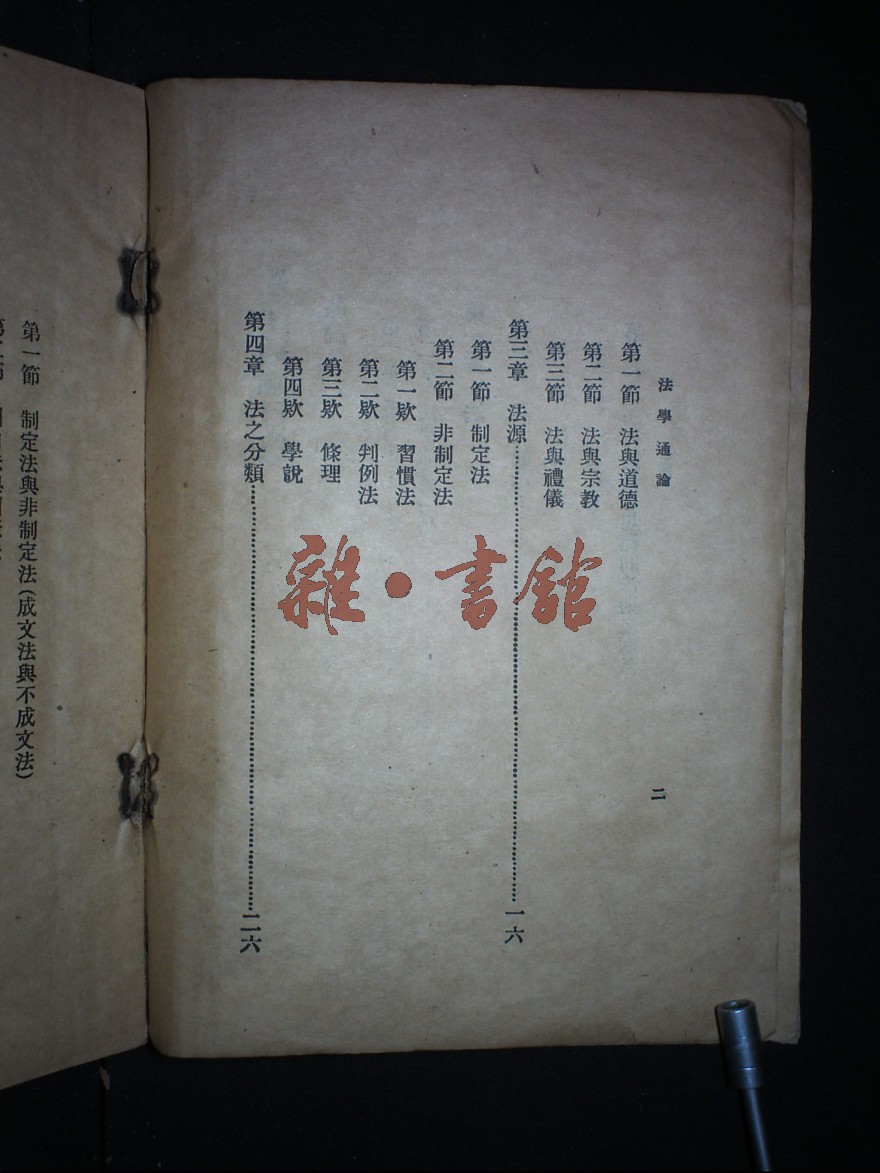 法學通論
二
第一節　法與道德
第二節　法與宗教
第三節　法與禮儀
第三章　法源……一六
第一節　制定法
第二節　非制定法
第一欵　習慣法
第二欵　判例法
第三欵　條理
第四欵　學說
第四章　法之分類……二六
第一節　制定法與非制定法(成文法與不成文法)
雜・書館